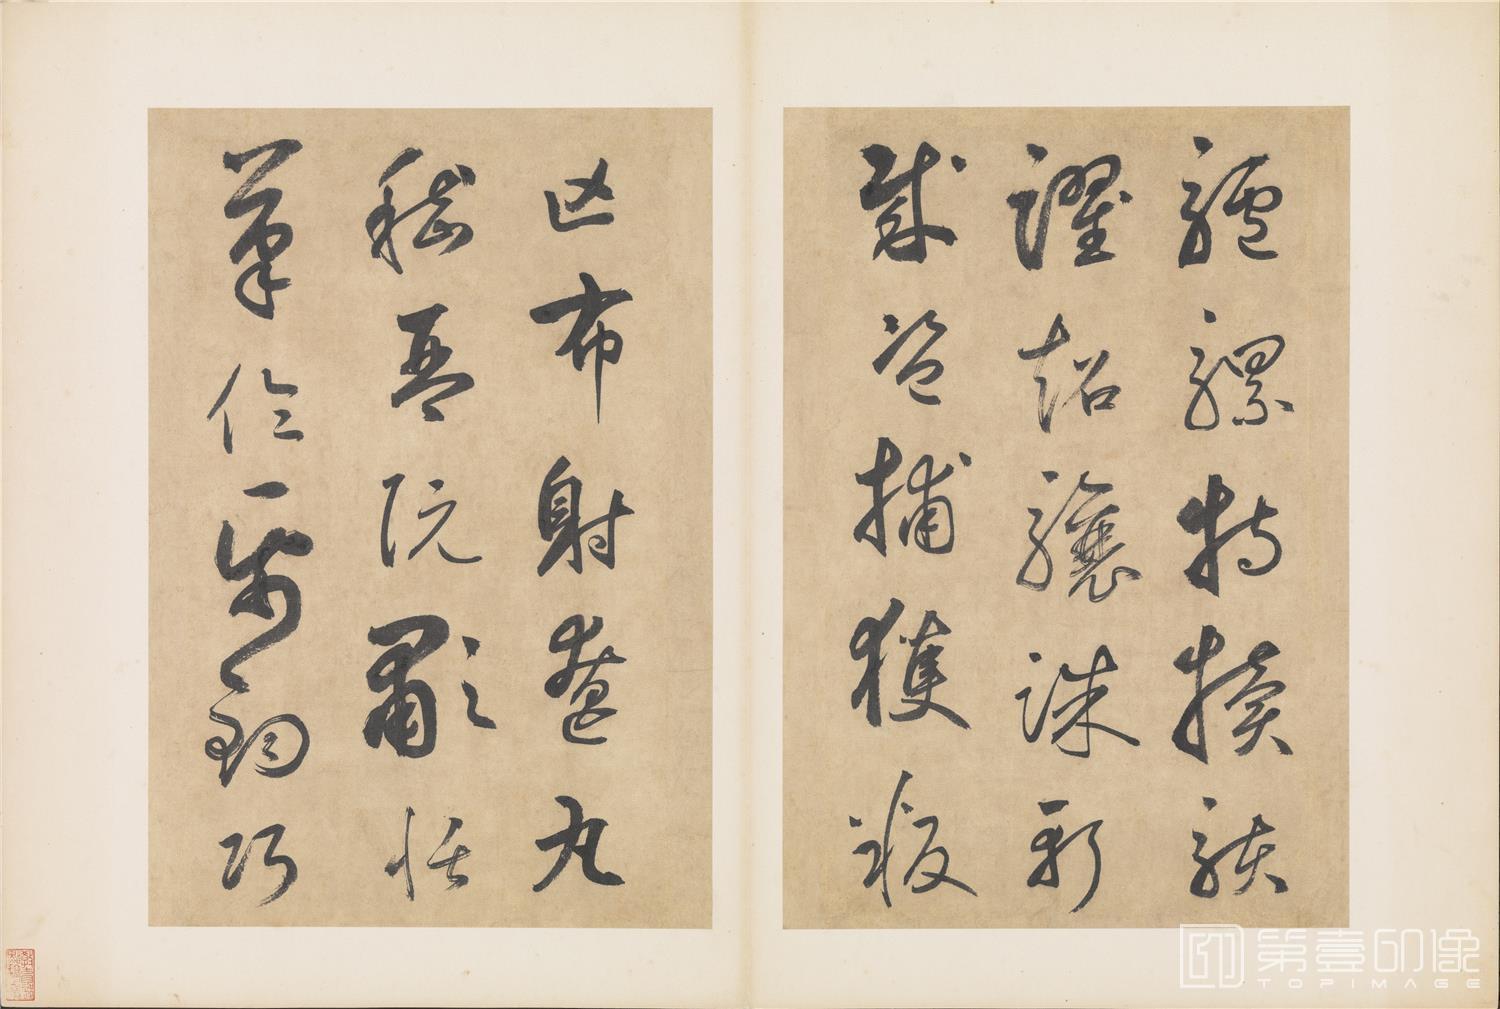 驢騾特犢駭
躍超驤誅斬
賊盜捕獲叛
亡布射遼丸
嵇琴阮歗恬
筆倫帋鈞巧
第壹印像
TOPIMAGE